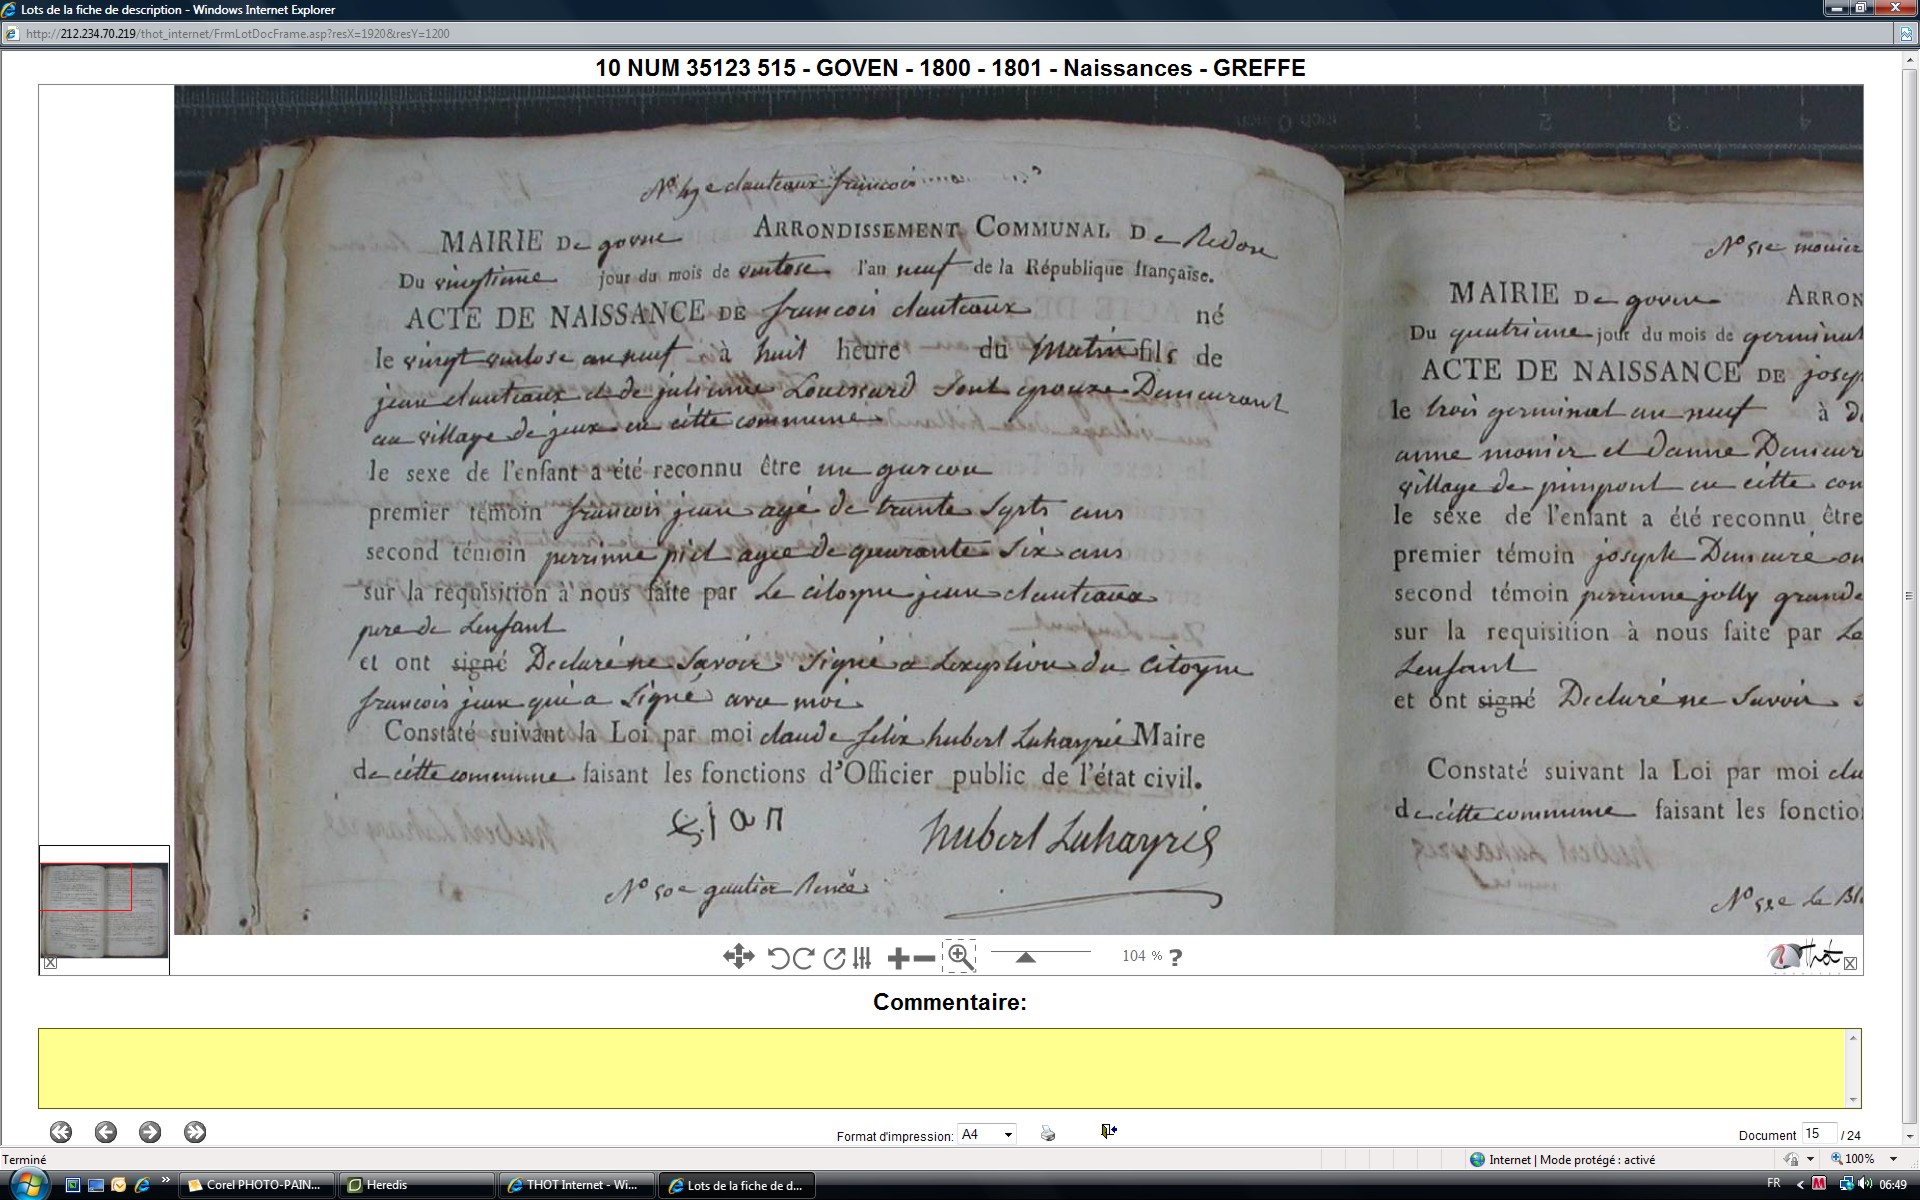 Lots de la fiche de description - Windows Internet Explorer
http://212.234.70.219/thot_internet/FrmLotDocFrame.asp?resX=1920&resY=1200
10 NUM 35123 515 - GOVEN - 1800 - 1801 - Naissances - GREFFE
dauteaux francois
MAIRIE De govne ARRONDISSEMENT COMMUNAL De Redon
Du vingtieme jour du mois de ventose l'an neuf de la République française.
ACTE DE NAISSANCE DE francois dauteaux né
le vingt ventose an neuf à huit heure du matin fils de
jean dauteaux et de julienne Louessard sont epouze Demeurant
au village de jeux en citte commune
le sexe de l'enfant a été reconnu être un garcon
premier témoin francois jean agé de trante Sypts ans
second témoin perrinne picl agée de quarante Six ans
sur la requisition à nous faite par Le citoyne jean dauteaux
pere de Lenfant
et ont signé Declaré ne Savoir Signé a Lexsption du Citoyne
francois jean qui a Signé avec moi
Constaté suivant la Loi par moi claude felix hubert Luhayrié Maire
de citte commune faisant les fonctions d'Officier public de l'état civil.
hubert Luhayrié
N° 50e gautier Renée
N° 51e monier
MAIRIE De govne ARRON
Du quatrieme jour du mois de germinal
ACTE DE NAISSANCE DE josep
le trois germinal an neuf à d
anne monier et danne Demeur
village de pimpont en citte con
le sexe de l'enfant a été reconnu être
premier témoin joseph Demeuré
second témoin perrinne jolly grande
sur la requisition à nous faite par Le
Lenfant
et ont signé Declaré ne Savoir
Constaté suivant la Loi par moi
de citte commune faisant les fonctio
N° 52e Le Bl
104 % ?
Thot
Commentaire:
Format d'impression: A4
Document 15 / 24
Terminé
Internet | Mode protégé : activé
100%
Corel PHOTO-PAIN...
Heredis
THOT Internet - Wi...
Lots de la fiche de d...
FR
06:49